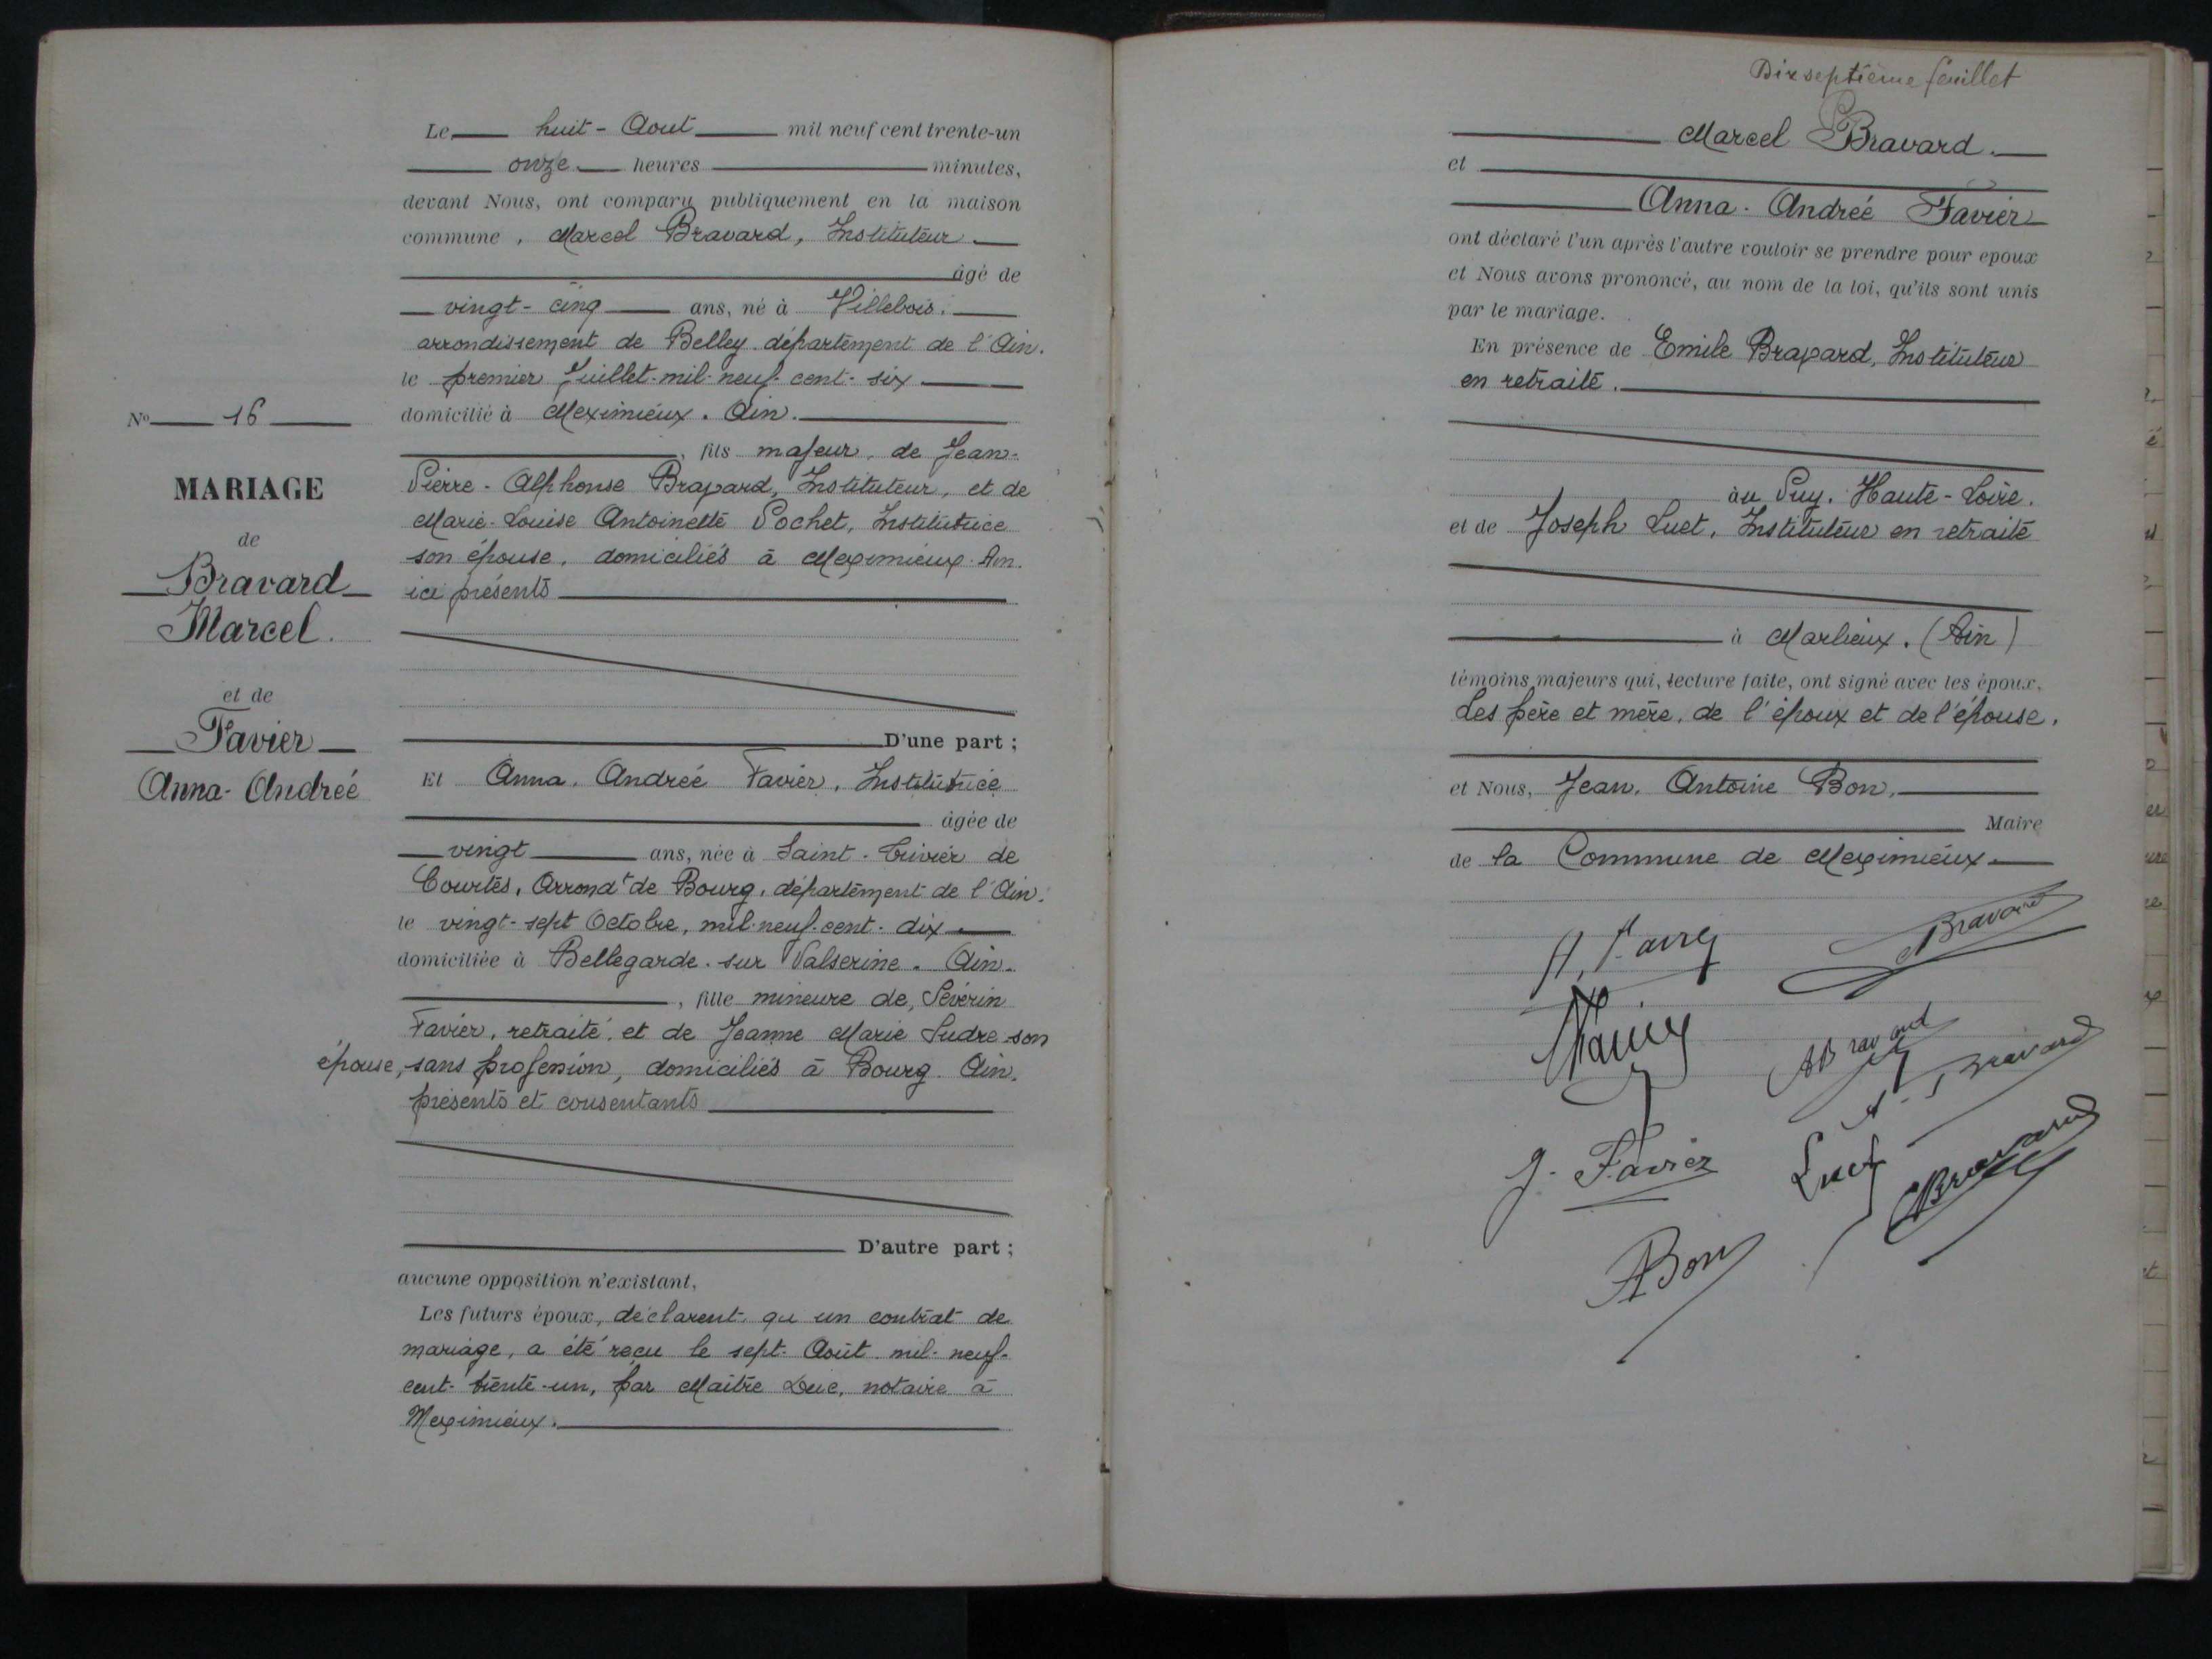 Le huit - Aout mil neuf cent trente-un
onze heures minutes,
devant Nous, ont comparu publiquement en la maison
commune, Marcel Bravard, Instituteur
âgé de
vingt-cinq ans, né à Villebois.
arrondissement de Belley département de l'Ain.
le premier Juillet-mil-neuf-cent-six
domicilié à Meximieux. Ain.
, fils majeur, de Jean-
Pierre-Alphonse Bravard, Instituteur, et de
Marie-Louise Antoinette Pochet, Institutrice
son épouse, domiciliés à Meximieux. Ain.
ici présents
D'une part ;
Et Anna. Andrée Favier, Institutrice
âgée de
vingt ans, née à Saint-Trivier de
Courtes, Arrondt de Bourg, département de l'Ain.
le vingt-sept Octobre, mil-neuf-cent-dix
domiciliée à Bellegarde-sur Valserine. Ain.
, fille mineure de, Sévérin
Favier, retraité, et de Jeanne Marie Sudre son
épouse, sans profession, domiciliés à Bourg. Ain.
présents et consentants
D'autre part ;
aucune opposition n'existant,
Les futurs époux, déclarent qu un contrat de
mariage, a été reçu le sept Août mil-neuf-
cent-trente-un, par Maître Duc, notaire à
Meximieux.
No 16
MARIAGE
de
Bravard
Marcel.
et de
Favier
Anna-Andrée
Dixseptième feuillet
Marcel Bravard.
et
Anna-Andrée Favier
ont déclaré l'un après l'autre vouloir se prendre pour epoux
et Nous avons prononcé, au nom de la loi, qu'ils sont unis
par le mariage.
En présence de Emile Bravard, Instituteur
en retraite.
au Puy. Haute-Loire.
et de Joseph Luet, Instituteur en retraite
à Marlieux. (Ain)
témoins majeurs qui, lecture faite, ont signé avec les époux,
Les père et mère, de l'époux et de l'épouse.
et Nous, Jean, Antoine Bon,
Maire
de la Commune de Meximieux
Bravard
ABravard
Bravard
J. Favier
Luet
Bravard
ABon